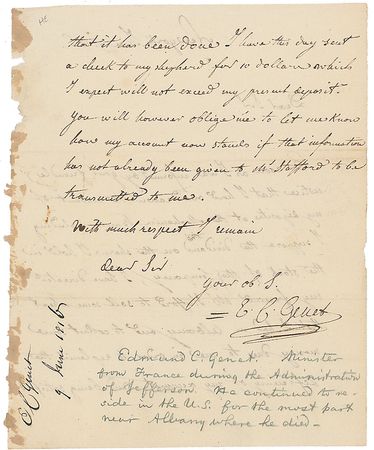 that it has been done I have this day sent
a check to my shepherd for 10 dollars which
I expect will not exceed my present deposit.
You will however oblige me to let me know
how my account now stands if that information
has not already been given to Mr Stafford to be
transmitted to me.
With much respect I remain
Dear Sir
Your ob. S.
E. C. Genet
Edmund C. Genet. Minister
from France during the Administration
of Jefferson. He continued to re-
side in the U.S. for the most part
near Albany where he died—
E C Genet
9 June 1816